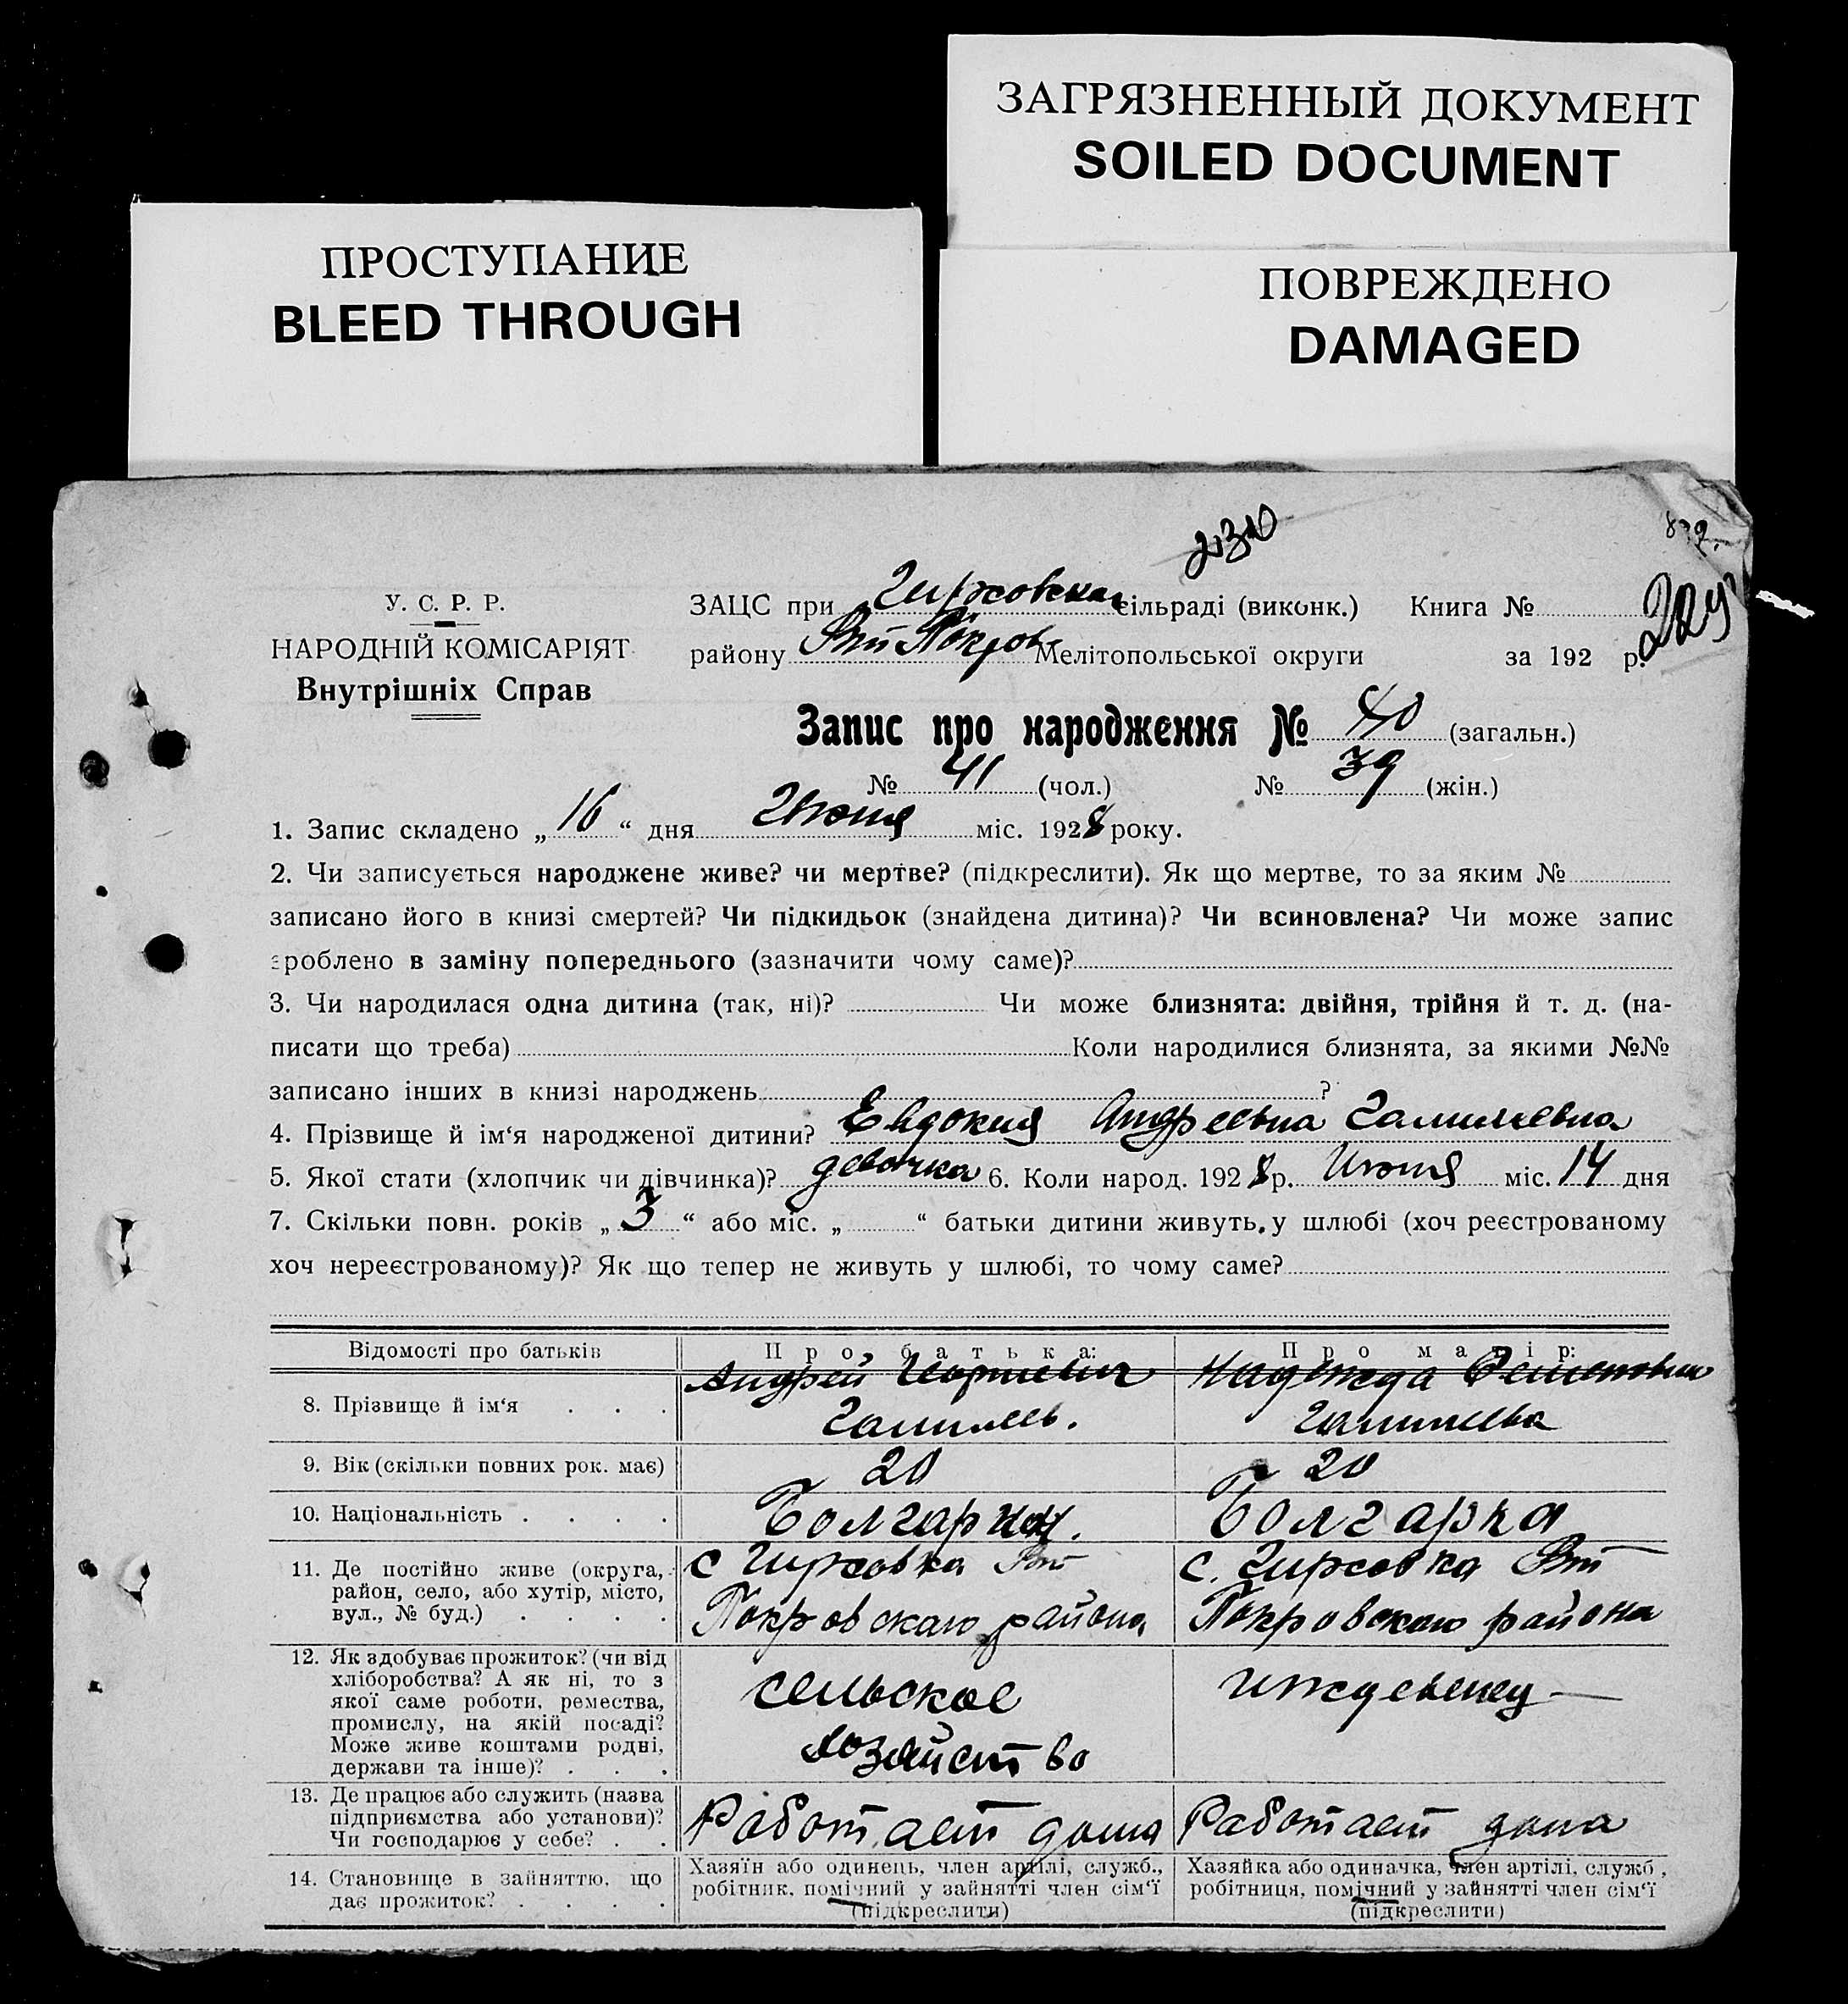 ЗАГРЯЗНЕННЫЙ ДОКУМЕНТ
SOILED DOCUMENT
ПРОСТУПАНИЕ
BLEED THROUGH
ПОВРЕЖДЕНО
DAMAGED
230
229
У. С. Р. Р.
НАРОДНІЙ КОМІСАРІЯТ
Внутрішніх Справ
ЗАЦС при Гирсовска сільраді (виконк.) Книга №
району Покров Мелітопольської округи за 192 р.
Запис про народження № 40 (загальн.)
№ 41 (чол.) № 39 (жін.)
1. Запис складено „ 16 “ дня Июня міс. 1928 року.
2. Чи записується народжене живе? чи мертве? (підкреслити). Як що мертве, то за яким №
записано його в книзі смертей? Чи підкидьок (знайдена дитина)? Чи всиновлена? Чи може запис
зроблено в заміну попереднього (зазначити чому саме)?
3. Чи народилася одна дитина (так, ні)? Чи може близнята: двійня, трійня й т. д. (на-
писати що треба) Коли народилися близнята, за якими №№
записано інших в книзі народжень ?
4. Прізвище й ім‘я народженої дитини? Евдокия Андреевна
5. Якої стати (хлопчик чи дівчинка)? девочка 6. Коли народ. 1928 р. Июня міс. 14 дня
7. Скільки повн. років „ 3 “ або міс. „ “ батьки дитини живуть у шлюбі (хоч реєстрованому
хоч нереєстрованому)? Як що тепер не живуть у шлюбі, то чому саме?
Відомості про батьків Про батька: Про матір:
8. Прізвище й ім‘я Андрей Надежда Семеновна
9. Вік (скільки повних рок. має) 20 20
10. Національність Болгарин. Болгарка
11. Де постійно живе (округа, район, село, або хутір, місто, вул., № буд.)
с Гирсовка Вт
Покровскаго района
с. Гирсовка Вт
Покровскаго района
12. Як здобуває прожиток? (чи від
хліборобства? А як ні, то з
якої саме роботи, ремества,
промислу, на якій посаді?
Може живе коштами родні,
держави та інше)?
сельское
хозяйство
иждевенец
13. Де працює або служить (назва
підприємства або установи)?
Чи господарює у себе?
Работает дома
Работает дома
14. Становище в зайняттю, що
дає прожиток?
Хазяїн або одинець, член артілі, служб.,
робітник, помічний у зайнятті член сім‘ї
(підкреслити)
Хазяйка або одиначка, член артілі, служб,
робітниця, помічний у зайнятті член сім‘ї
(підкреслити)